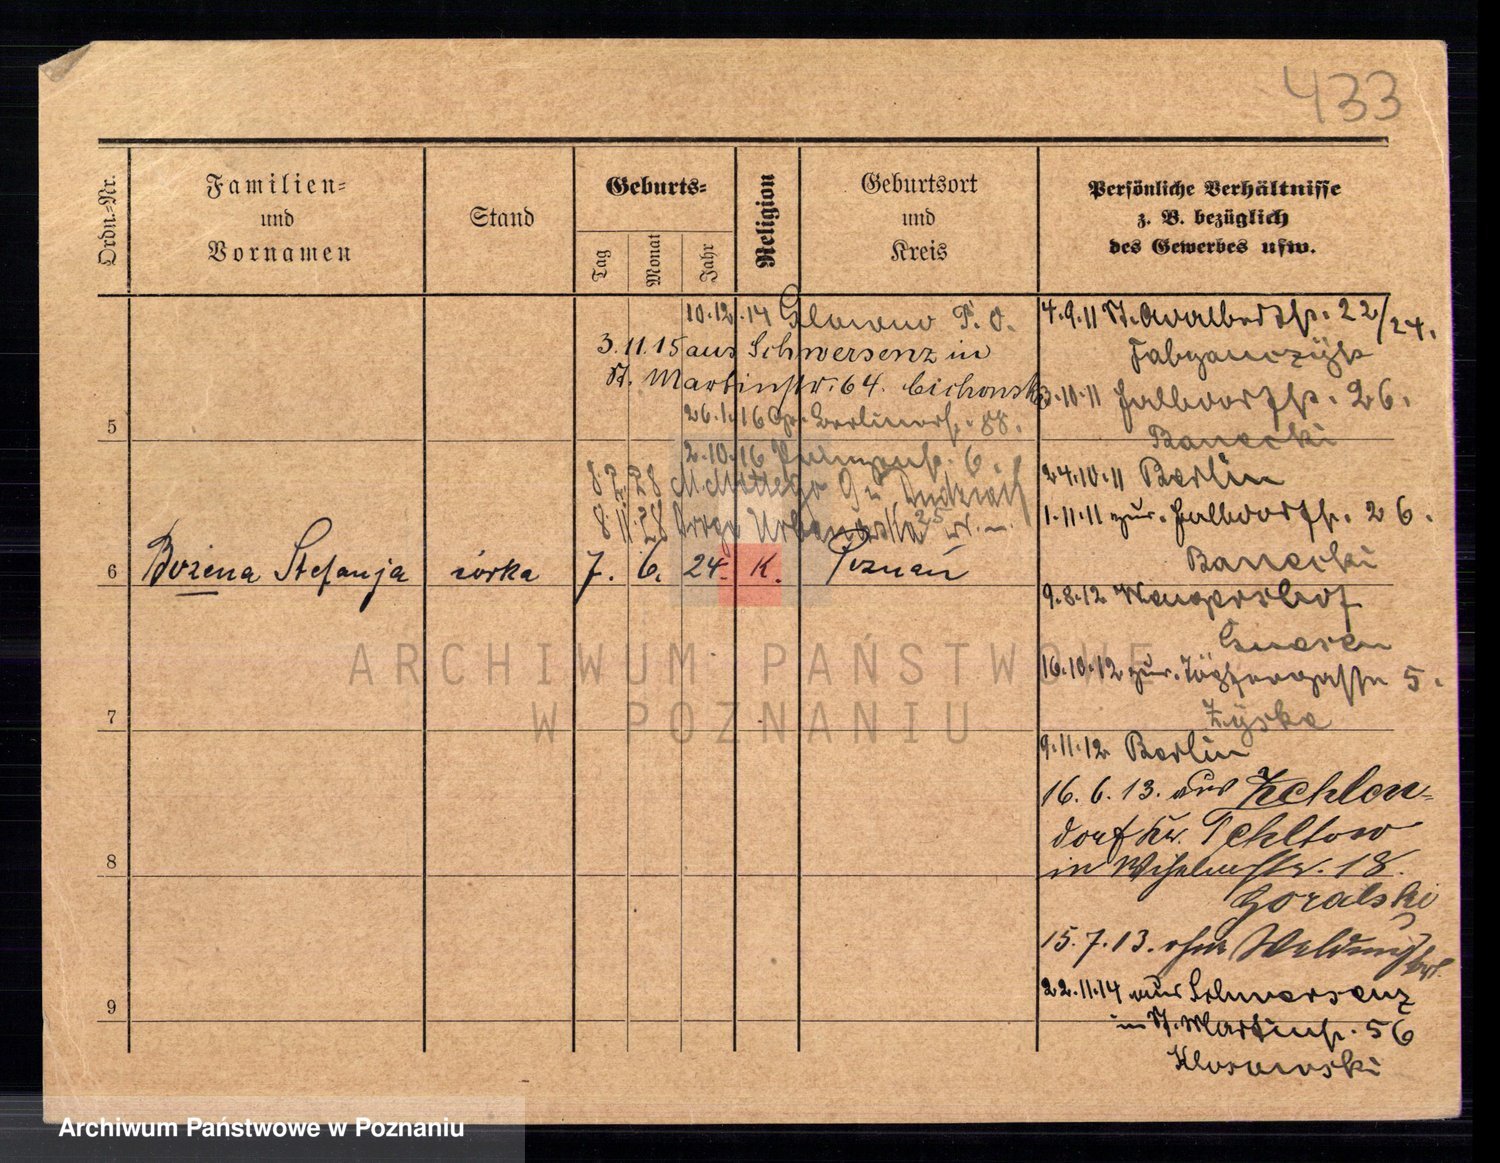 433
Ordn.-Nr.
Familien-
und
Vornamen
Stand
Geburts-
Tag
Monat
Jahr
Religion
Geburtsort
und
Kreis
Persönliche Verhältnisse
z. B. bezüglich
des Gewerbes usw.
10.12.14 Glowno P. O.
3.11.15 aus Schwersenz in
St. Martinstr. 64. Cichonski
26.1.16 Gr. Berlinerstr. 88.
2.10.16
5
8.2.28
8.11.28
6 Bożena Stefanja córka 7. 6. 24. K. Poznań
7
8
9
4.9.11 St. Adalbertstr. 22/24.
3.10.11 Halbdorfstr. 26.
Banecki
24.10.11 Berlin
1.11.11 zur. Halbdorfstr. 26.
Banecki
9.8.12
Gnesen
16.10.12 zur. 5.
Zyska
9.11.12 Berlin
16.6.13. aus Zehlen-
dorf Kr. Tehltow
in Wilhelmstr. 18.
Goralski
15.7.13. ohne Meldung
22.11.14 aus Schwersenz
in St. Martinstr. 56
Klosowski
ARCHIWUM PAŃSTWOWE
W POZNANIU
Archiwum Państwowe w Poznaniu